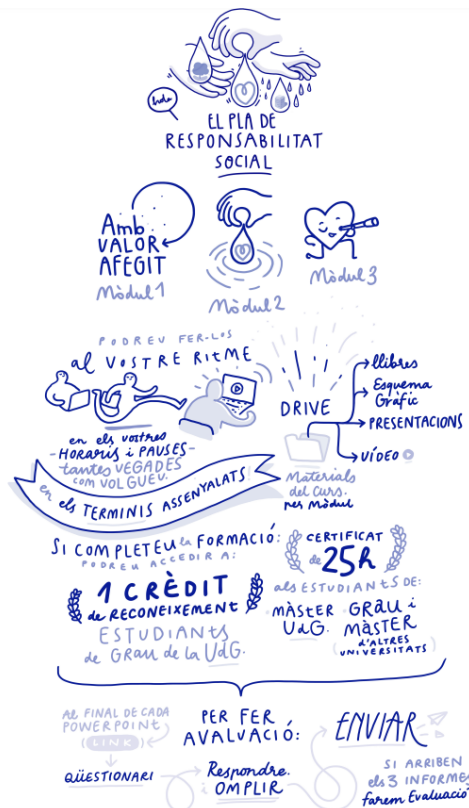 hola
EL PLA DE
RESPONSABILITAT
SOCIAL
Amb
VALOR
AFEGIT
Mòdul 1
Mòdul 2
Mòdul 3
PODREU FER-LOS
al VOSTRE RITME
en els vostres
-HORARIS i PAUSES-
tantes VEGADES
com VOLGUEU.
en els TERMINIS ASSENYALATS
DRIVE
llibres
Esquema
Gràfic
PRESENTACIONS
VÍDEO
Materials
del Curs.
per Mòdul
SI COMPLETEU la FORMACIÓ:
PODREU ACCEDIR A:
1 CRÈDIT
de RECONEIXEMENT
ESTUDIANTS
de GRAU de la UdG.
CERTIFICAT
de 25h
als ESTUDIANTS DE:
MÀSTER
UdG.
GRAU i
MÀSTER
(D'ALTRES
UNIVERSITATS)
AL FINAL DE CADA
POWERPOINT
(LINK)
QÜESTIONARI
PER FER
AVALUACIÓ:
Respondre.
i OMPLIR
ENVIAR
SI ARRIBEN
els 3 INFORMES
farem Evaluació